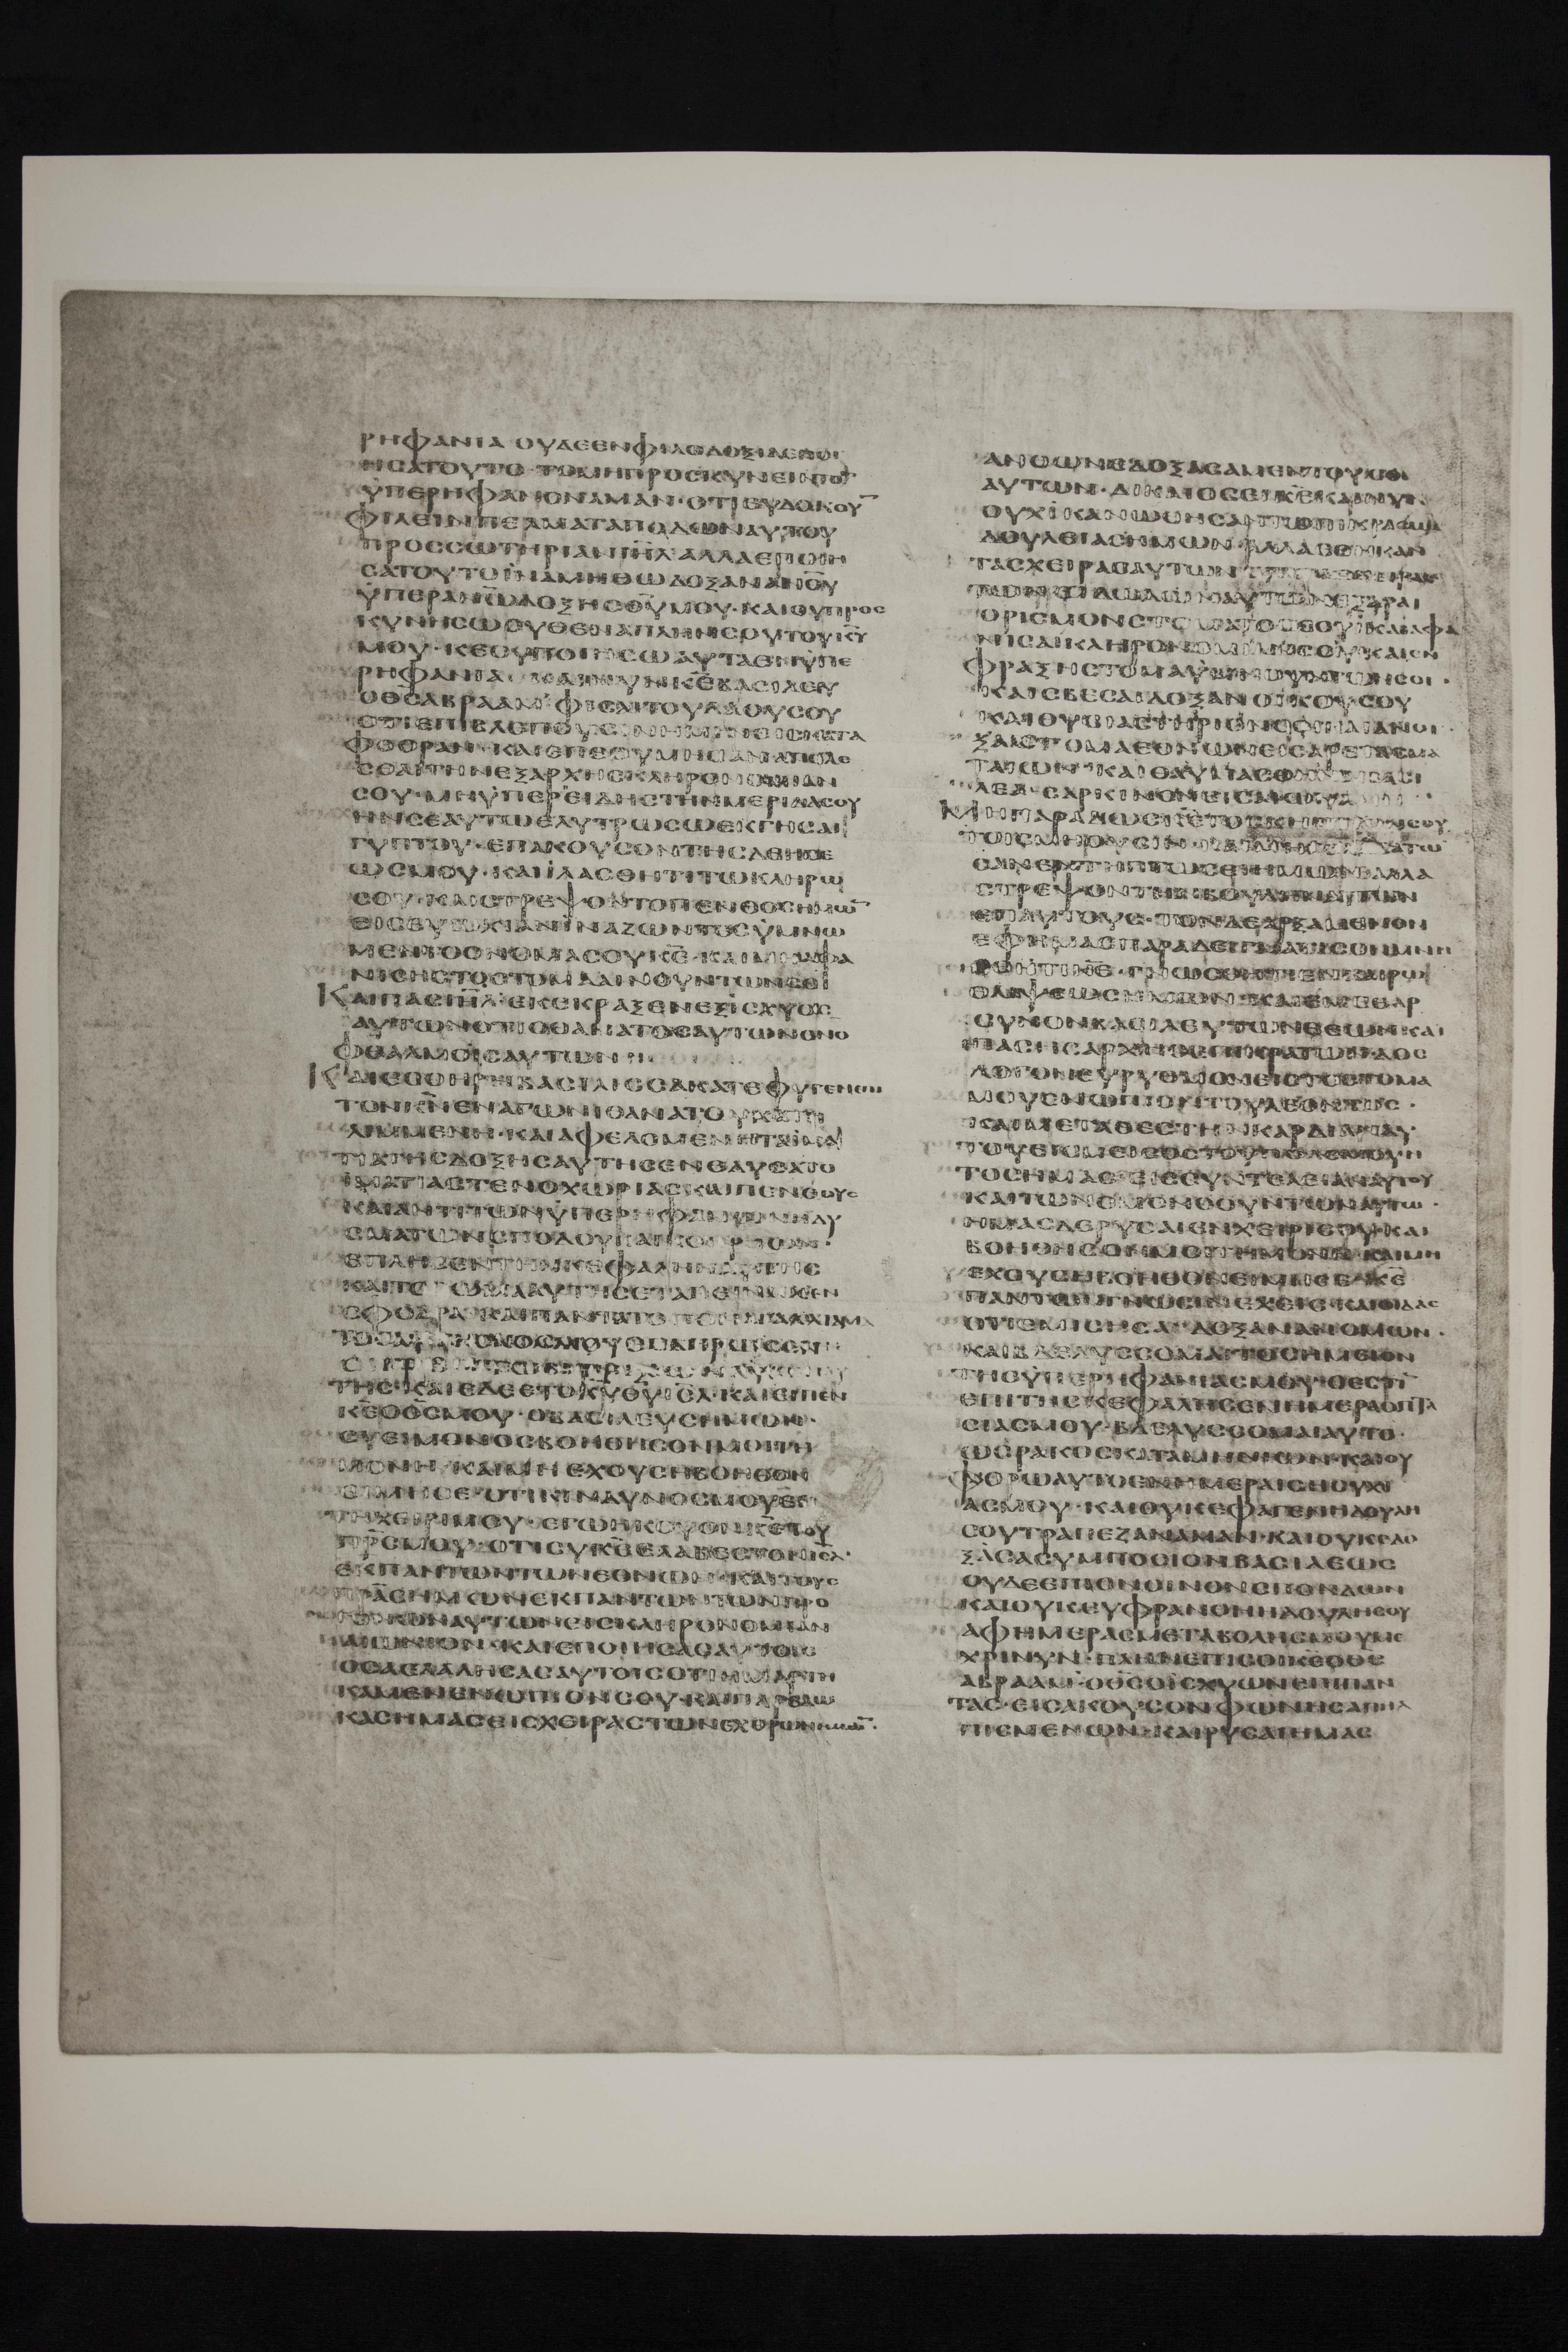 ΡΗΦΑΝΙΑ ΟΥΔΕ ΕΝ ΦΙΛΟΔΟΞΙΑ ΕΠΟΙ
ΗΣΑ ΤΟΥΤΟ· ΤΟ ΜΗ ΠΡΟΣΚΥΝΕΙΝ ΤΟΝ
ΫΠΕΡΗΦΑΝΟΝ ΑΜΑΝ· ΟΤΙ ΕΥΔΟΚΟΥ̅
ΦΙΛΕΙΝ ΠΕΛΜΑΤΑ ΠΟΔΩΝ ΑΥΤΟΥ
ΠΡΟΣ ΣΩΤΗΡΙΑΝ Ι̅Η̅Λ̅ ΑΛΛΑ ΕΠΟΙΗ
ΣΑ ΤΟΥΤΟ ΪΝΑ ΜΗ ΘΩ ΔΟΞΑΝ ΑΝ̅Ο̅Υ̅
ΫΠΕΡΑΝΩ ΔΟΞΗΣ Θ̅Υ̅ ΜΟΥ· ΚΑΙ ΟΥ ΠΡΟΣ
ΚΥΝΗΣΩ ΟΥΘΕΝΑ ΠΛΗΝ ΣΟΥ ΤΟΥ Κ̅Υ̅
ΜΟΥ· Κ ΟΥ ΠΟΙΗΣΩ ΑΥΤΑ ΕΝ ΫΠΕ
ΡΗΦΑΝΙΑ· ΚΑΙ ΝΥΝ Κ̅Ε̅ ΒΑΣΙΛΕΥ
Ο Θ̅Σ̅ ΑΒΡΑΑΜ· ΦΙΣΑΙ ΤΟΥ ΛΑΟΥ ΣΟΥ
ΟΤΙ ΕΠΙΒΛΕΠΟΥΣΙΝ ΗΜΙΝ ΕΙΣ ΚΑΤΑ
ΦΘΟΡΑΝ· ΚΑΙ ΕΠΕΘΥΜΗΣΑΝ ΑΠΟΛΕ
ΣΘΑΙ ΤΗΝ ΕΞ ΑΡΧΗΣ ΚΛΗΡΟΝΟΜΙΑΝ
ΣΟΥ· ΜΗ ΫΠΕΡΕΙΔΗΣ ΤΗΝ ΜΕΡΙΔΑ ΣΟΥ
ΗΝ ΣΕΑΥΤΩ ΕΛΥΤΡΩΣΩ ΕΚ ΓΗΣ ΑΙ
ΓΥΠΤΟΥ· ΕΠΑΚΟΥΣΟΝ ΤΗΣ ΔΕΗΣΕ
ΩΣ ΜΟΥ· ΚΑΙ ΪΛΑΣΘΗΤΙ ΤΩ ΚΛΗΡΩ
ΣΟΥ· ΚΑΙ ΣΤΡΕΨΟΝ ΤΟ ΠΕΝΘΟΣ ΗΜΩ̅
ΕΙΣ ΕΥΩΧΙΑΝ ΪΝΑ ΖΩΝΤΕΣ ΫΜΝΩ
ΜΕΝ ΤΟ ΟΝΟΜΑ ΣΟΥ Κ̅Ε̅· ΚΑΙ ΜΗ ΑΦΑ
ΝΙΣΗΣ ΤΟ ΣΤΟΜΑ ΑΙΝΟΥΝΤΩΝ ΣΟΙ
ΚΑΙ ΠΑΣ Ι̅Η̅Λ̅ ΕΚΕΚΡΑΞΕΝ ΕΞ ΪΣΧΥΟΣ
ΑΥΤΩΝ ΟΤΙ Ο ΘΑΝΑΤΟΣ ΑΥΤΩΝ ΕΝ Ο
ΦΘΑΛΜΟΙΣ ΑΥΤΩΝ
ΚΑΙ ΕΣΘΗΡ Η ΒΑΣΙΛΙΣΣΑ ΚΑΤΕΦΥΓΕΝ ΕΠΙ
ΤΟΝ Κ̅Ν̅ ΕΝ ΑΓΩΝΙ ΘΑΝΑΤΟΥ
ΚΑΙ ΑΦΕΛΟΜΕΝΗ ΤΑ ΪΜΑ
ΤΙΑ ΤΗΣ ΔΟΞΗΣ ΑΥΤΗΣ ΕΝΕΔΥΣΑΤΟ
ΪΜΑΤΙΑ ΣΤΕΝΟΧΩΡΙΑΣ ΚΑΙ ΠΕΝΘΟΥΣ
ΚΑΙ ΑΝΤΙ ΤΩΝ ΫΠΕΡΗΦΑΝΩΝ ΗΔΥ
ΣΜΑΤΩΝ ΣΠΟΔΟΥ ΚΑΙ ΚΟΠΡΙΩΝ·
ΕΠΛΗΣΕΝ ΤΗΝ ΚΕΦΑΛΗΝ ΑΥΤΗΣ
ΚΑΙ ΤΟ ΣΩΜΑ ΑΥΤΗΣ ΕΤΑΠΕΙΝΩΣΕΝ
ΣΦΟΔΡΑ· ΚΑΙ ΠΑΝΤΑ
ΤΗΣ· ΚΑΙ ΕΔΕΕΤΟ Κ̅Υ̅ Θ̅Υ̅ Ι̅Σ̅Λ̅· ΚΑΙ ΕΙΠΕΝ
Κ̅Ε̅ Ο Θ̅Σ̅ ΜΟΥ· Ο ΒΑΣΙΛΕΥΣ ΗΜΩΝ·
ΣΥ ΕΙ ΜΟΝΟΣ ΒΟΗΘΗΣΟΝ ΜΟΙ ΤΗ
ΜΟΝΗ· ΚΑΙ ΜΗ ΕΧΟΥΣΗ ΒΟΗΘΟΝ
ΕΙ ΜΗ ΣΕ· ΟΤΙ ΚΙΝΔΥΝΟΣ ΜΟΥ ΕΝ
ΤΗ ΧΕΙΡΙ ΜΟΥ· ΕΓΩ ΗΚΟΥΟΝ Κ̅Ε̅ ΤΟΥ
Π̅Ρ̅Σ̅ ΜΟΥ· ΟΤΙ ΣΥ Κ̅Ε̅ ΕΛΑΒΕΣ ΤΟΝ Ι̅Σ̅Λ̅·
ΕΚ ΠΑΝΤΩΝ ΤΩΝ ΕΘΝΩΝ· ΚΑΙ ΤΟΥΣ
Π̅Ρ̅Α̅Σ̅ ΗΜΩΝ ΕΚ ΠΑΝΤΩΝ ΤΩΝ ΠΡΟ
ΓΟΝΩΝ ΑΥΤΩΝ ΕΙΣ ΚΛΗΡΟΝΟΜΙΑΝ
ΑΙΩΝΙΟΝ· ΚΑΙ ΕΠΟΙΗΣΑΣ ΑΥΤΟΙΣ
ΟΣΑ ΕΛΑΛΗΣΑΣ ΑΥΤΟΙΣ ΟΤΙ ΗΜΑΡΤΗ
ΚΑΜΕΝ ΕΝΩΠΙΟΝ ΣΟΥ· ΚΑΙ ΠΑΡΕΔΩ
ΚΑΣ ΗΜΑΣ ΕΙΣ ΧΕΙΡΑΣ ΤΩΝ ΕΧΘΡΩΝ ΗΜΩ̅·
ΑΝΘ ΩΝ ΕΔΟΞΑΣΑΜΕΝ ΤΟΥΣ Θ
ΑΥΤΩΝ· ΔΙΚΑΙΟΣ ΕΙ Κ̅Ε̅ ΚΑΙ ΝΥΝ
ΟΥΧ ΪΚΑΝΩΘΗΣΑΝ ΕΝ ΠΙΚΡΑΣΜΩ
ΔΟΥΛΕΙΑΣ ΗΜΩΝ· ΑΛΛΑ ΕΘΗΚΑΝ
ΤΑΣ ΧΕΙΡΑΣ ΑΥΤΩΝ
ΑΥΤΩΝ ΕΞΑΡΑΙ
ΟΡΙΣΜΟΝ ΣΤΟΜΑΤΟΣ ΣΟΥ· ΚΑΙ ΑΦΑ
ΝΙΣΑΙ ΚΛΗΡΟΝΟΜΙΑΝ ΣΟΥ· ΚΑΙ ΕΝ
ΦΡΑΞΗ ΣΤΟΜΑ ΑΙΝΟΥΝΤΩΝ ΣΟΙ·
ΚΑΙ ΣΒΕΣΑΙ ΔΟΞΑΝ ΟΙΚΟΥ ΣΟΥ
ΚΑΙ ΘΥΣΙΑΣΤΗΡΙΟΝ ΣΟΥ ΚΑΙ ΑΝΟΙ
ΞΑΙ ΣΤΟΜΑ ΕΘΝΩΝ ΕΙΣ ΑΡΕΤΑΣ ΜΑ
ΤΑΙΩΝ· ΚΑΙ ΘΑΥΜΑΣΘΗΝΑΙ ΒΑΣΙ
ΛΕΑ· ΣΑΡΚΙΝΟΝ ΕΙΣ
ΜΗ ΠΑΡΑΔΩΣ Κ̅Ε̅ ΤΟ ΣΚΗΠΤΡΟΝ ΣΟΥ
ΤΟΙΣ ΜΗ ΟΥΣΙΝ· ΚΑΙ ΜΗ ΚΑΤΑΓΕΛΑΤΩ
ΣΑΝ ΕΝ ΤΗ ΠΤΩΣΕΙ ΗΜΩΝ ΑΛΛΑ
ΣΤΡΕΨΟΝ ΤΗΝ ΒΟΥΛΗΝ ΑΥΤΩΝ
ΕΠ ΑΥΤΟΥΣ· ΤΟΝ ΔΕ ΑΡΞΑΜΕΝΟΝ
ΕΦ ΗΜΑΣ ΠΑΡΑΔΕΙΓΜΑΤΙΣΟΝ ΜΝΗ
ΣΘΗΤΙ Κ̅Ε̅· ΓΝΩΣΘΗΤΙ ΕΝ ΚΑΙΡΩ
ΘΛΙΨΕΩΣ ΗΜΩΝ· ΚΑΙ ΕΜΕ ΘΑΡ
ΣΥΝΟΝ ΒΑΣΙΛΕΥ ΤΩΝ ΘΕΩΝ ΚΑΙ
ΠΑΣΗΣ ΑΡΧΗΣ ΕΠΙΚΡΑΤΩΝ ΔΟΣ
ΛΟΓΟΝ ΕΥΡΥΘΜΟΝ ΕΙΣ ΤΟ ΣΤΟΜΑ
ΜΟΥ ΕΝΩΠΙΟΝ ΤΟΥ ΛΕΟΝΤΟΣ·
ΚΑΙ ΜΕΤΑΘΕΣ ΤΗΝ ΚΑΡΔΙΑΝ ΑΥ
ΤΟΥ ΕΙΣ ΜΙΣΟΣ ΤΟΥ ΠΟΛΕΜΟΥΝ
ΤΟΣ ΗΜΑΣ ΕΙΣ ΣΥΝΤΕΛΕΙΑΝ ΑΥΤΟΥ
ΚΑΙ ΤΩΝ ΟΜΟΝΟΟΥΝΤΩΝ ΑΥΤΩ·
ΗΜΑΣ ΔΕ ΡΥΣΑΙ ΕΝ ΧΕΙΡΙ ΣΟΥ· ΚΑΙ
ΒΟΗΘΗΣΟΝ ΜΟΙ ΤΗ ΜΟΝΗ· ΚΑΙ ΜΗ
ΕΧΟΥΣΗ ΒΟΗΘΟΝ ΕΙ ΜΗ ΣΕ Κ̅Ε̅
ΠΑΝΤΩΝ ΓΝΩΣΙΝ ΕΧΕΙΣ· ΚΑΙ ΟΙΔΑΣ
ΟΤΙ ΕΜΙΣΗΣΑ ΔΟΞΑΝ ΑΝΟΜΩΝ·
ΚΑΙ ΒΔΕΛΥΣΣΟΜΑΙ ΤΟ ΣΗΜΕΙΟΝ
ΤΗΣ ΫΠΕΡΗΦΑΝΙΑΣ ΜΟΥ· Ο ΕΣΤΙ̅
ΕΠΙ ΤΗΣ ΚΕΦΑΛΗΣ ΕΝ ΗΜΕΡΑ ΟΠΤΑ
ΣΙΑΣ ΜΟΥ· ΒΔΕΛΥΣΣΟΜΑΙ ΑΥΤΟ·
ΩΣ ΡΑΚΟΣ ΚΑΤΑΜΗΝΙΩΝ· ΚΑΙ ΟΥ
ΦΟΡΩ ΑΥΤΟ ΕΝ ΗΜΕΡΑΙΣ ΗΣΥΧΙ
ΑΣ ΜΟΥ· ΚΑΙ ΟΥΚ ΕΦΑΓΕΝ Η ΔΟΥΛΗ
ΣΟΥ ΤΡΑΠΕΖΑΝ ΑΜΑΝ· ΚΑΙ ΟΥΚ ΕΔΟ
ΞΑΣΑ ΣΥΜΠΟΣΙΟΝ ΒΑΣΙΛΕΩΣ
ΟΥΔΕ ΕΠΙΟΝ ΟΙΝΟΝ ΣΠΟΝΔΩΝ
ΚΑΙ ΟΥΚ ΕΥΦΡΑΝΘΗ Η ΔΟΥΛΗ ΣΟΥ
ΑΦ ΗΜΕΡΑΣ ΜΕΤΑΒΟΛΗΣ ΜΟΥ ΜΕ
ΧΡΙ ΝΥΝ· ΠΛΗΝ ΕΠΙ ΣΟΙ Κ̅Ε̅ Ο Θ̅Σ̅
ΑΒΡΑΑΜ· Ο Θ̅Σ̅ Ο ΪΣΧΥΩΝ ΕΠΙ ΠΑΝ
ΤΑΣ· ΕΙΣΑΚΟΥΣΟΝ ΦΩΝΗΣ ΑΠΗΛ
ΠΙΣΜΕΝΩΝ· ΚΑΙ ΡΥΣΑΙ ΗΜΑΣ